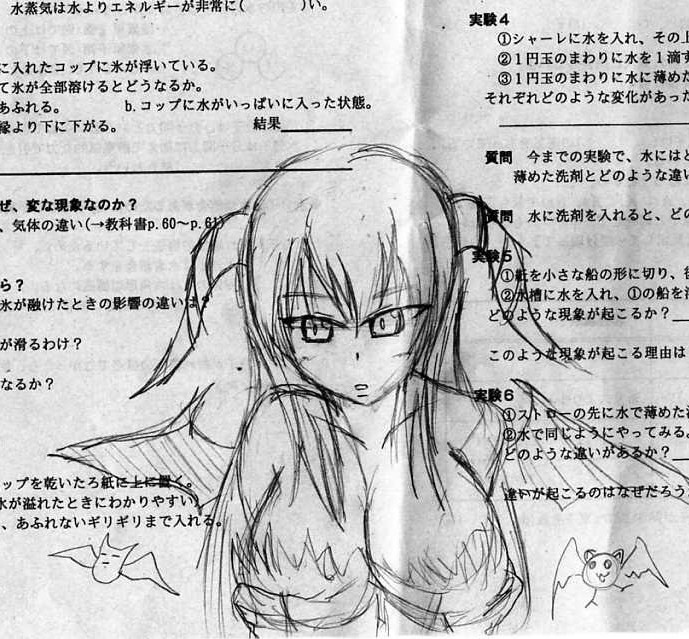 水蒸気は水よりエネルギーが非常に(　　　)い。
に入れたコップに氷が浮いている。
て氷が全部溶けるとどうなるか。
あふれる。　b.コップに水がいっぱいに入った状態。
縁より下に下がる。　結果
ぜ、変な現象なのか？
、気体の違い(→教科書p.60～p.61)
ら？
氷が融けたときの影響の違いは？
が滑るわけ？
なるか？
ップを乾いたろ紙に上に置く。
水が溢れたときにわかりやすい)
、あふれないギリギリまで入れる。
実験４
①シャーレに水を入れ、その上
②１円玉のまわりに水を１滴す
③１円玉のまわりに水に薄めた
それぞれどのような変化があった
質問　今までの実験で、水にはど
薄めた洗剤とどのような違い
質問　水に洗剤を入れると、どの
実験５
①紙を小さな船の形に切り、後
②水槽に水を入れ、①の船を浮
どのような現象が起こるか？
このような現象が起こる理由は
実験６
①ストローの先に水で薄めた
②水で同じようにやってみる。
どのような違いがあるか？
違いが起こるのはなぜだろう